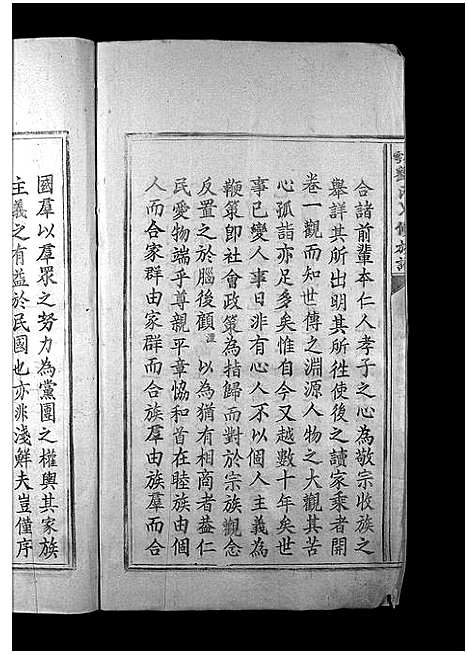 合諸前輩本仁人孝子之心為敬宗收族之
舉詳其所出明其所徃使後之讀家乘者開
卷一觀而知世傳之淵源人物之大觀其苦
心孤詣亦足多矣惟自今又越數十年矣世
事已變人事日非有心人不以個人主義為
鞭策即社會政策為指歸而對於宗族觀念
反置之於腦後顧 以為猶有相商者葢仁
民愛物端乎尊親平章恊和首在睦族由個
人而合家群由家群而合族羣由族羣而合
國羣以羣眾之努力為黨團之權輿其家族
主義之有益於民國也亦非淺鮮夫豈僅序